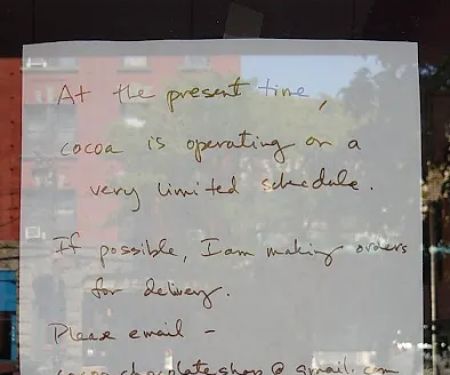 At the present time,
cocoa is operating on a
very limited schedule.
If possible, I am making orders
for delivery.
Please email -
cocoachocolateshop@gmail.com